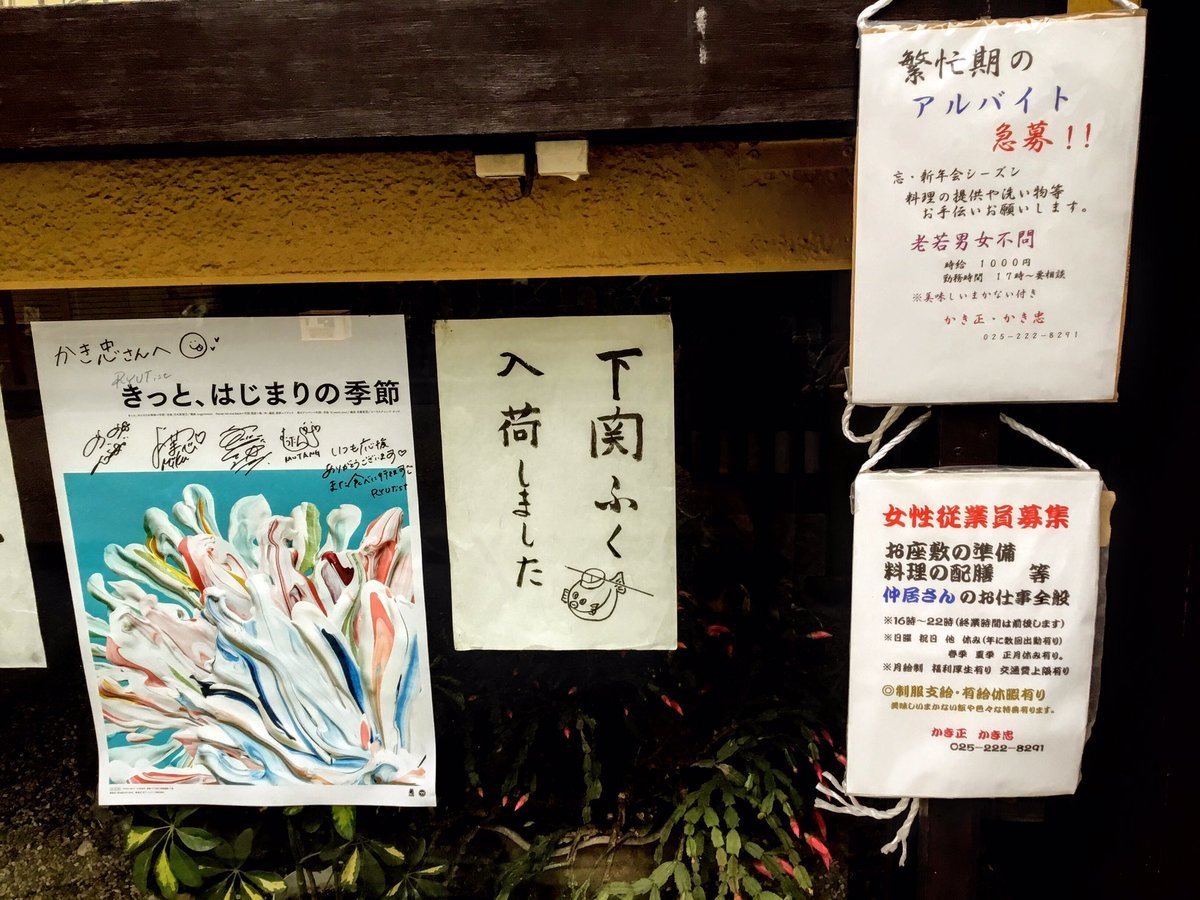 かき忠さんへ
RYUTist
きっと、はじまりの季節
MIKU
MUTANG
いつも応援
ありがとうございます
また食べに行きます
RYUTist
下関ふく
入荷しました
繁忙期の
アルバイト
急募!!
忘・新年会シーズン
料理の提供や洗い物等
お手伝いお願いします。
老若男女不問
時給 1000円
勤務時間 17時～要相談
※美味しいまかない付き
かき正・かき忠
025-222-8291
女性従業員募集
お座敷の準備
料理の配膳 等
仲居さんのお仕事全般
※16時～22時(終業時間は前後します)
※日曜 祝日 他 休み(年に数回出勤有り)
春季 夏季 正月休み有り。
※月給制 福利厚生有り 交通費上限有り
◎制服支給・有給休暇有り
美味しいまかない飯や色々な特典有ります。
かき正 かき忠
025-222-8291